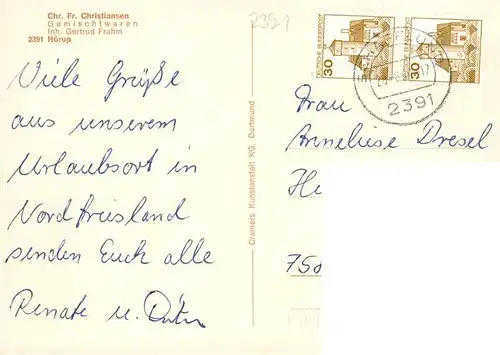 Chr. Fr. Christiansen
Gemischtwaren
Inh. Gertrud Frahm
2391 Hörup
2391
Viele Grüße
aus unserem
Urlaubsort in
Nordfriesland
senden Euch alle
Renate u.
Cramers Kunstanstalt KG, Dortmund
DEUTSCHE BUNDESPOST
30
30
2391
Frau
Anneliese Dresel
He
750